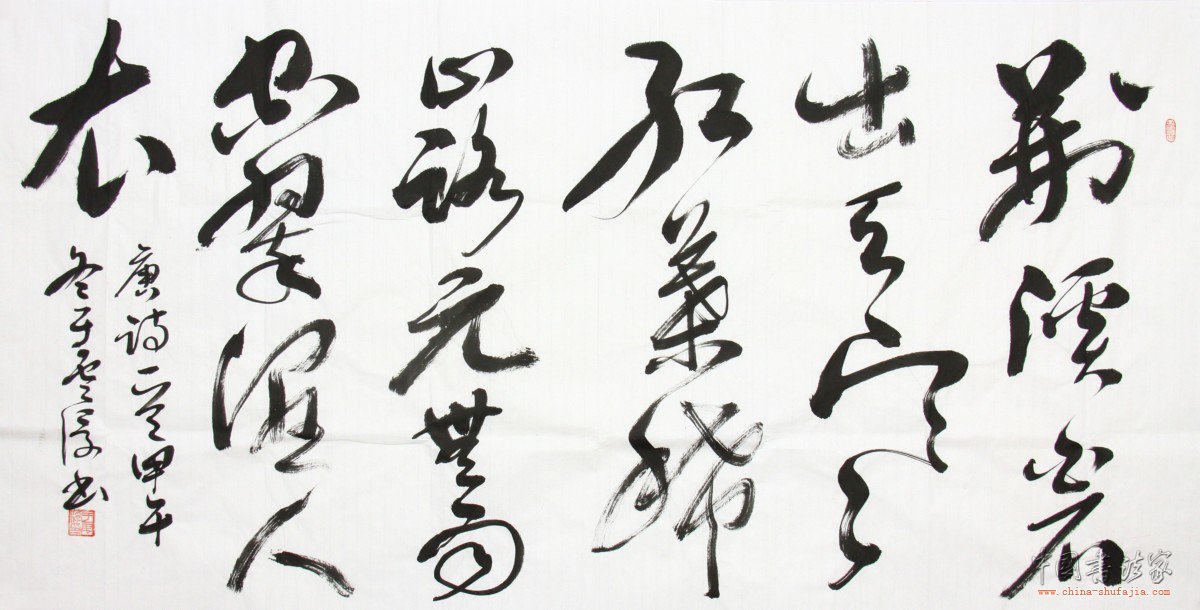 荆溪白石
出天寒
红葉稀
山路元無雨
空翠湿人
衣
唐诗一首甲午
冬于雲书
中国书法家
www.china-shufajia.com